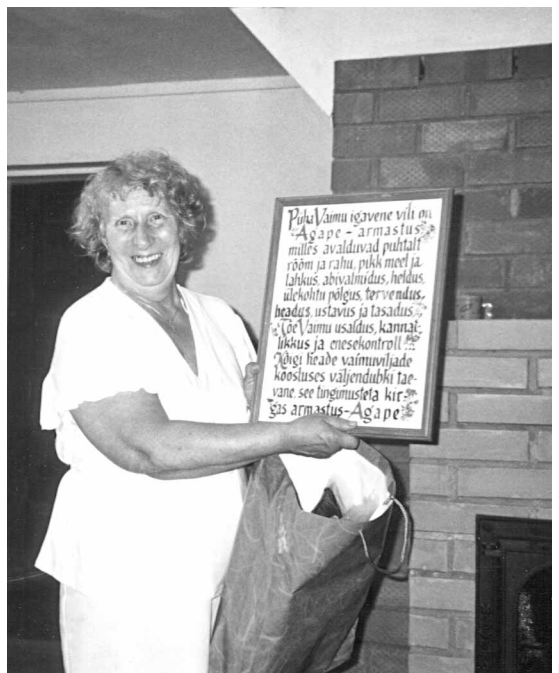 Püha Vaimu igavene vili on
Agape - armastus
milles avalduvad puhtalt
rõõm ja rahu, pikk meel ja
lahkus, abivalmidus, heldus,
ülekohtu põlgus, tervendus,
headus, ustavus ja tasadus,
Tõe Vaimu usaldus, kannat-
likkus ja enesekontroll!!!
Kõigi heade vaimuviljade
koosluses väljendubki tae-
vane, see tingimusteta kir-
gas armastus-Agape